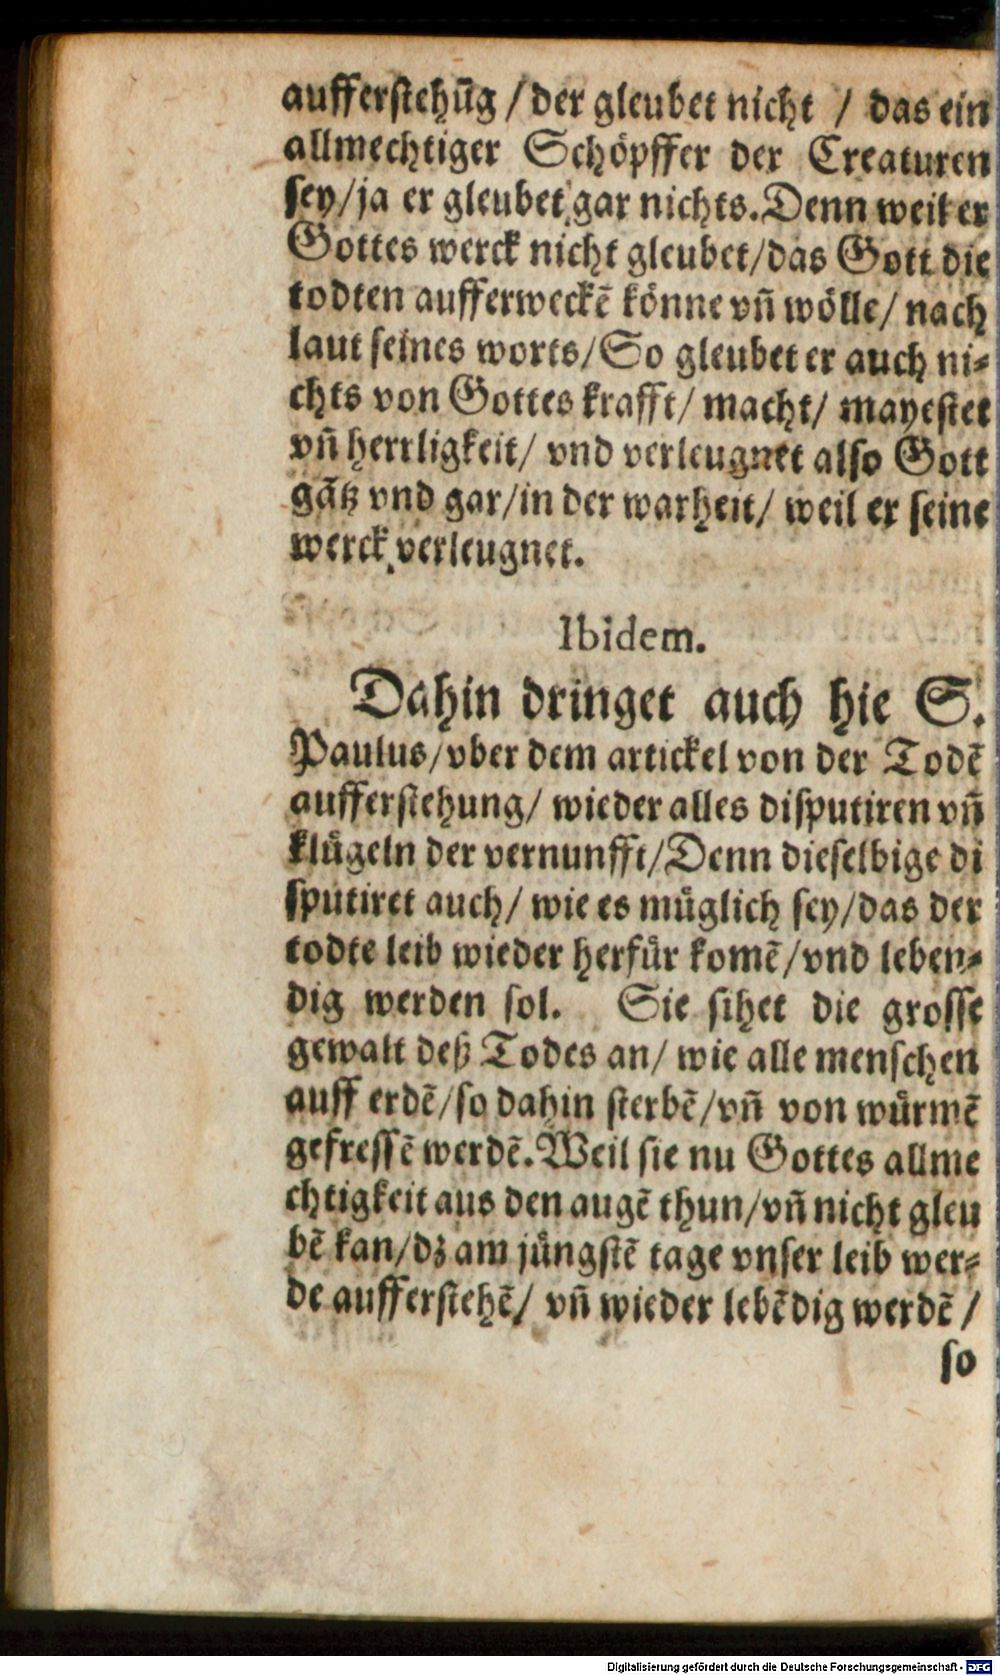 aufferstehūg / der gleubet nicht / das ein
allmechtiger Schöpffer der Creaturen
sey/ja er gleubet gar nichts. Denn weil er
Gottes werck nicht gleubet/das Gott die
todten aufferweckē könne vñ wölle/ nach
laut seines worts/So gleubet er auch ni-
chts von Gottes krafft/ macht/ mayestet
vñ herrligkeit/ vnd verleugnet also Gott
gātz vnd gar/in der warheit/ weil er seine
werck verleugnet.
Ibidem.
Dahin dringet auch hie S.
Paulus/vber dem artickel von der Todē
aufferstehung/ wieder alles disputiren vñ
klügeln der vernunfft/Denn dieselbige di
sputiret auch/ wie es müglich sey/das der
todte leib wieder herfür komē/vnd leben-
dig werden sol. Sie sihet die grosse
gewalt deß Todes an/ wie alle menschen
auff erdē/so dahin sterbē/vñ von würmē
gefressē werdē. Weil sie nu Gottes allme
chtigkeit aus den augē thun/vñ nicht gleu
bē kan/dz am jüngstē tage vnser leib wer-
de aufferstehē/ vñ wieder lebēdig werdē /
so
Digitalisierung gefördert durch die Deutsche Forschungsgemeinschaft - DFG